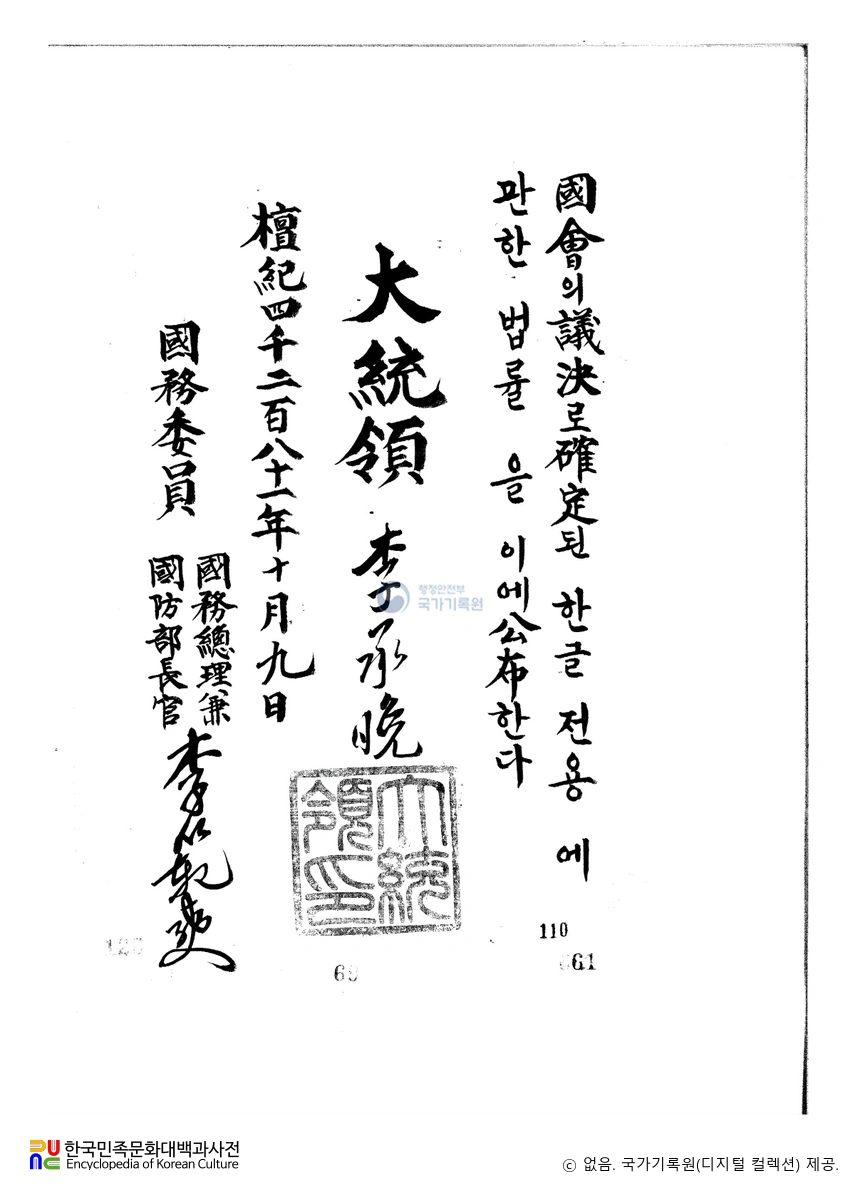 國會의議決로確定된 한글 전용 에
관한 법률 을 이에公布한다
大統領 李承晩
大統領印
檀紀四千二百八十一年十月九日
國務委員
國務總理兼
國防部長官
李範奭
행정안전부
국가기록원
110
661
한국민족문화대백과사전
Encyclopedia of Korean Culture
ⓒ 없음. 국가기록원(디지털 컬렉션) 제공.